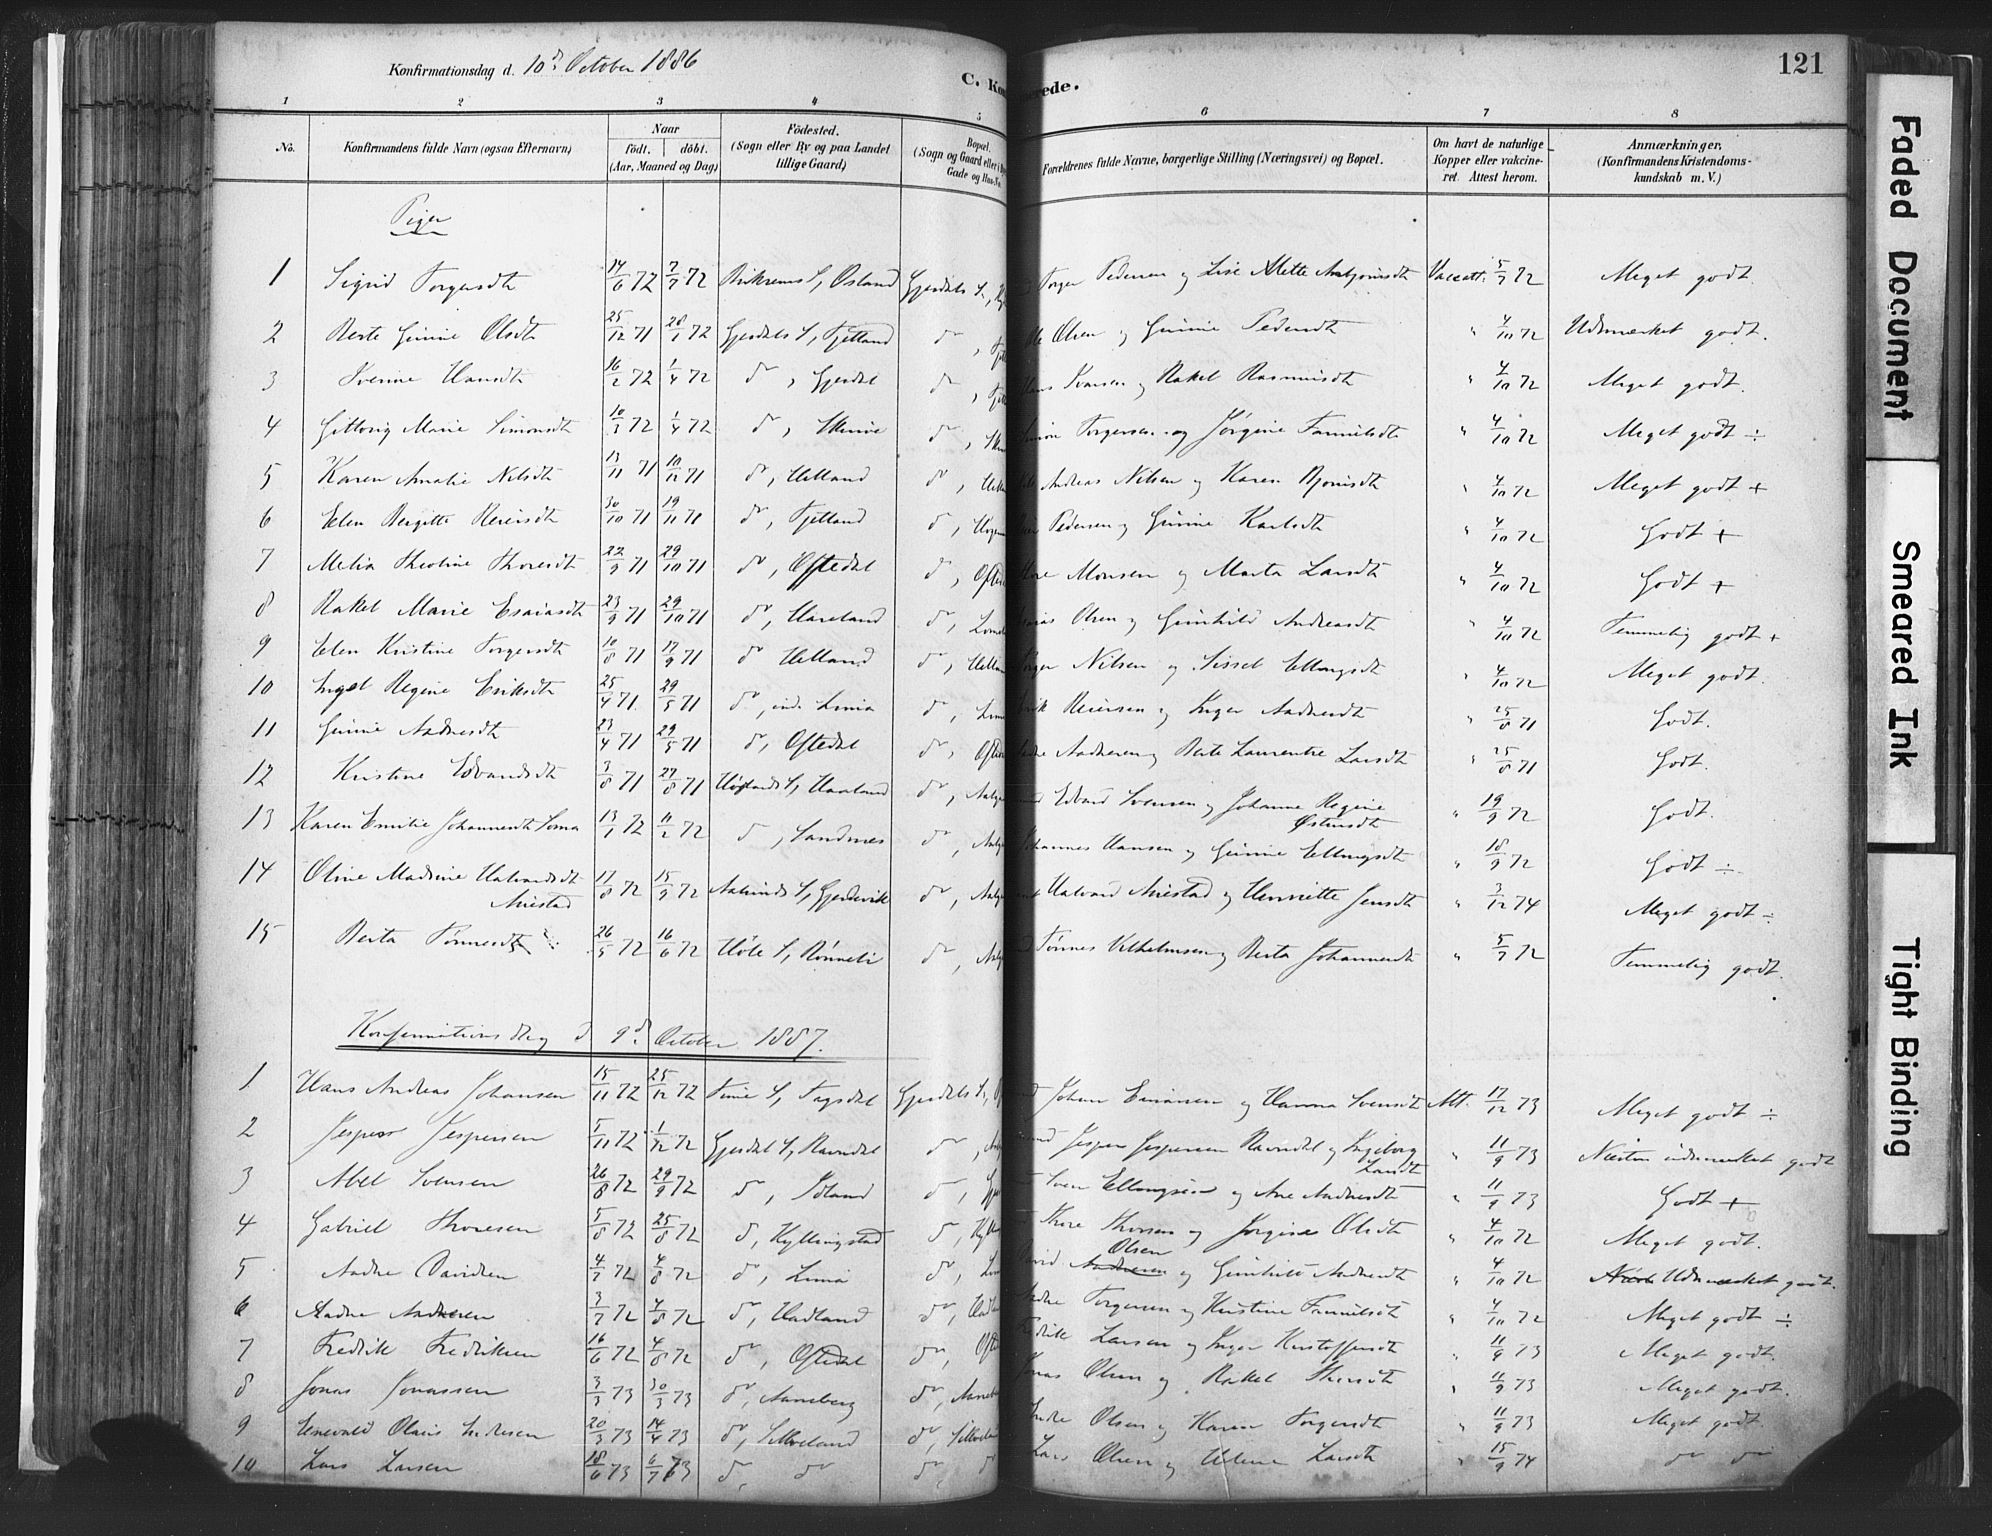 Konfirmationsdag d. 10de October 1886
C. Kon
erede.
121
1 2 3 4 5 6 7 8
No.
Konfirmandens fulde Navn (ogsaa Efternavn)
Naar
födt. döbt.
(Aar, Maaned og Dag)
Födested.
(Sogn eller By og paa Landet
tillige Gaard)
Bopæl.
(Sogn og Gaard eller i
Gade og Hus-No.
Forældrenes fulde Navne, borgerlige Stilling (Næringsvei) og Bopæl.
Om havt de naturlige
Kopper eller vakcine-
ret. Attest herom.
Anmærkninger.
(Konfirmandens Kristendoms-
kundskab m. V.)
Piger
1 Sigrid Torgersdt 14/6 72 7/7 72 Birkrems S, Østand Gjesdals S., Torger Pedersen og Lise Mette Asbjørnsdt Vaccatt. 5/7 72 Meget godt.
2 Berte Gunnie Olsdt 25/12 71 28/1 72 Gjesdals S, Fjetland do, Ole Olsen og Gunnie Pedersdt " 4/10 72 Udmærket godt.
3 Sverine Hansdt 16/2 72 1/4 72 do, Gjesdal do, Hans Svensen og Rakel Rasmusdt " 4/10 72 Meget godt.
4 Gittorig Marie Simonsdt 10/3 72 1/4 72 do, Skurve do, Simon Torgersen og Jørgine Tønnesdt " 4/10 72 Meget godt ÷
5 Karen Amalie Nilsdt 13/11 71 10/12 71 do, Helland do, Andreas Nilsen og Karen Bjørnsdt " 4/10 72 Meget godt +
6 Elen Bergitte Reiersdt 30/10 71 19/11 71 do, Fjetland do, Pedersen og Gunnie Karlsdt " 4/10 72 Godt +
7 Melia Theoline Thoresdt 22/9 71 29/10 71 do, Oftedal do, Thore Monsen og Marta Larsdt " 4/10 72 Godt +
8 Rakel Marie Esaiasdt 23/9 71 29/10 71 do, Haveland do, Esaias Olsen og Gunhild Andreasdt " 4/10 72 Temmelig godt +
9 Elen Kristine Torgersdt 10/8 71 17/9 71 do Helland do, Torger Nilsen og Sissel Ellingsdt " 4/10 72 Meget godt.
10 Ingel Regine Eriksdt 25/4 71. 29/5 71 do, Limia do, Erik Reiersen og Inger Aadnesdt " 25/8 71 Godt.
11 Gunnie Aadnesdt 23/4 71 29/5 71 do, Oftedal do, Aadne Aadnesen og Berte Laurentze Larsdt " 25/8 71 Godt.
12 Kristine Edvardsdt 3/8 71 27/8 71 Høilands S, Haaland do, Edvard Svensen og Johanne Regine
Østensdt " 19/9 72 Godt.
13 Karen Emilie Johannesdt Soma 13/1 72 11/2 72 do, Sandnes do, Johannes Hansen og Gunnie Ellingsdt " 18/9 72 Godt ÷
14 Oline Madsine Halvardsdt
Auestad 17/8 72 15/9 72 Aalunds S, Gjerdevik do, Halvard Auestad og Henriette Jensdt " 3/12 74 Meget godt ÷
15 Berta Tønnesdt 26/5 72 16/6 72 Høle S, Rønneli do, Tønnes Vilhelmsen og Berta Johannesdt " 5/7 72 Temmelig godt.
Konfirmations dag d 9de October 1887.
1 Hans Andreas Johansen 15/11 72 25/12 72 Time S, Fogsdal Gjesdals S., Johan Einarsen og Hanna Svensdt Att. 17/12 73 Meget godt ÷
2 Jesper Jespersen 5/11 72 1/12 72 Gjesdal S, Ravndal do, Jesper Jespersen Ravndal og Ingeborg
Larsdt " 11/9 73 Næsten udmærket godt
3 Abel Svensen 26/8 72 29/9 72 do, Idland do, Sven Ellingsen og Ane Andersdt " 11/9 73 Godt +
4 Gabriel Thoresen 5/8 72 25/8 72 do, Kyllingstad do, Thore Thorsen og Jorgine Olsdt " 4/10 72 Meget godt.
5 Aadne Davidsen 4/7 72 4/8 72 do, Limia do, David Olsen Aadnesen og Gunhild Aadnesdt " 4/10 72 Udmærket godt.
6 Aadne Aadnesen 3/7 72 4/8 72 do, Hadland do, Aadne Torgersen og Kristine Tønnesdt " 4/10 72 Meget godt ÷
7 Fredrik Fredriksen 16/6 72 4/8 72 do, Oftedal do, Fredrik Larsen og Inger Kristoffersdt " 11/9 73 Meget godt.
8 Jonas Jonassen 3/3 73 30/3 73 do, Aaneberg do, Jonas Olsen og Rakel Thoresdt " 11/9 73 Meget godt.
9 Enevald Olaus Endresen 20/3 73 14/4 73 do, Sikveland do, Endre Olsen og Karen Torgersdt " 11/9 73 Meget godt
10 Lars Larsen 18/6 73 6/7 73 do, do do, do Lars Olsen og Helene Larsdt " 15/9 74 do do
Faded Document
Smeared Ink
Tight Binding